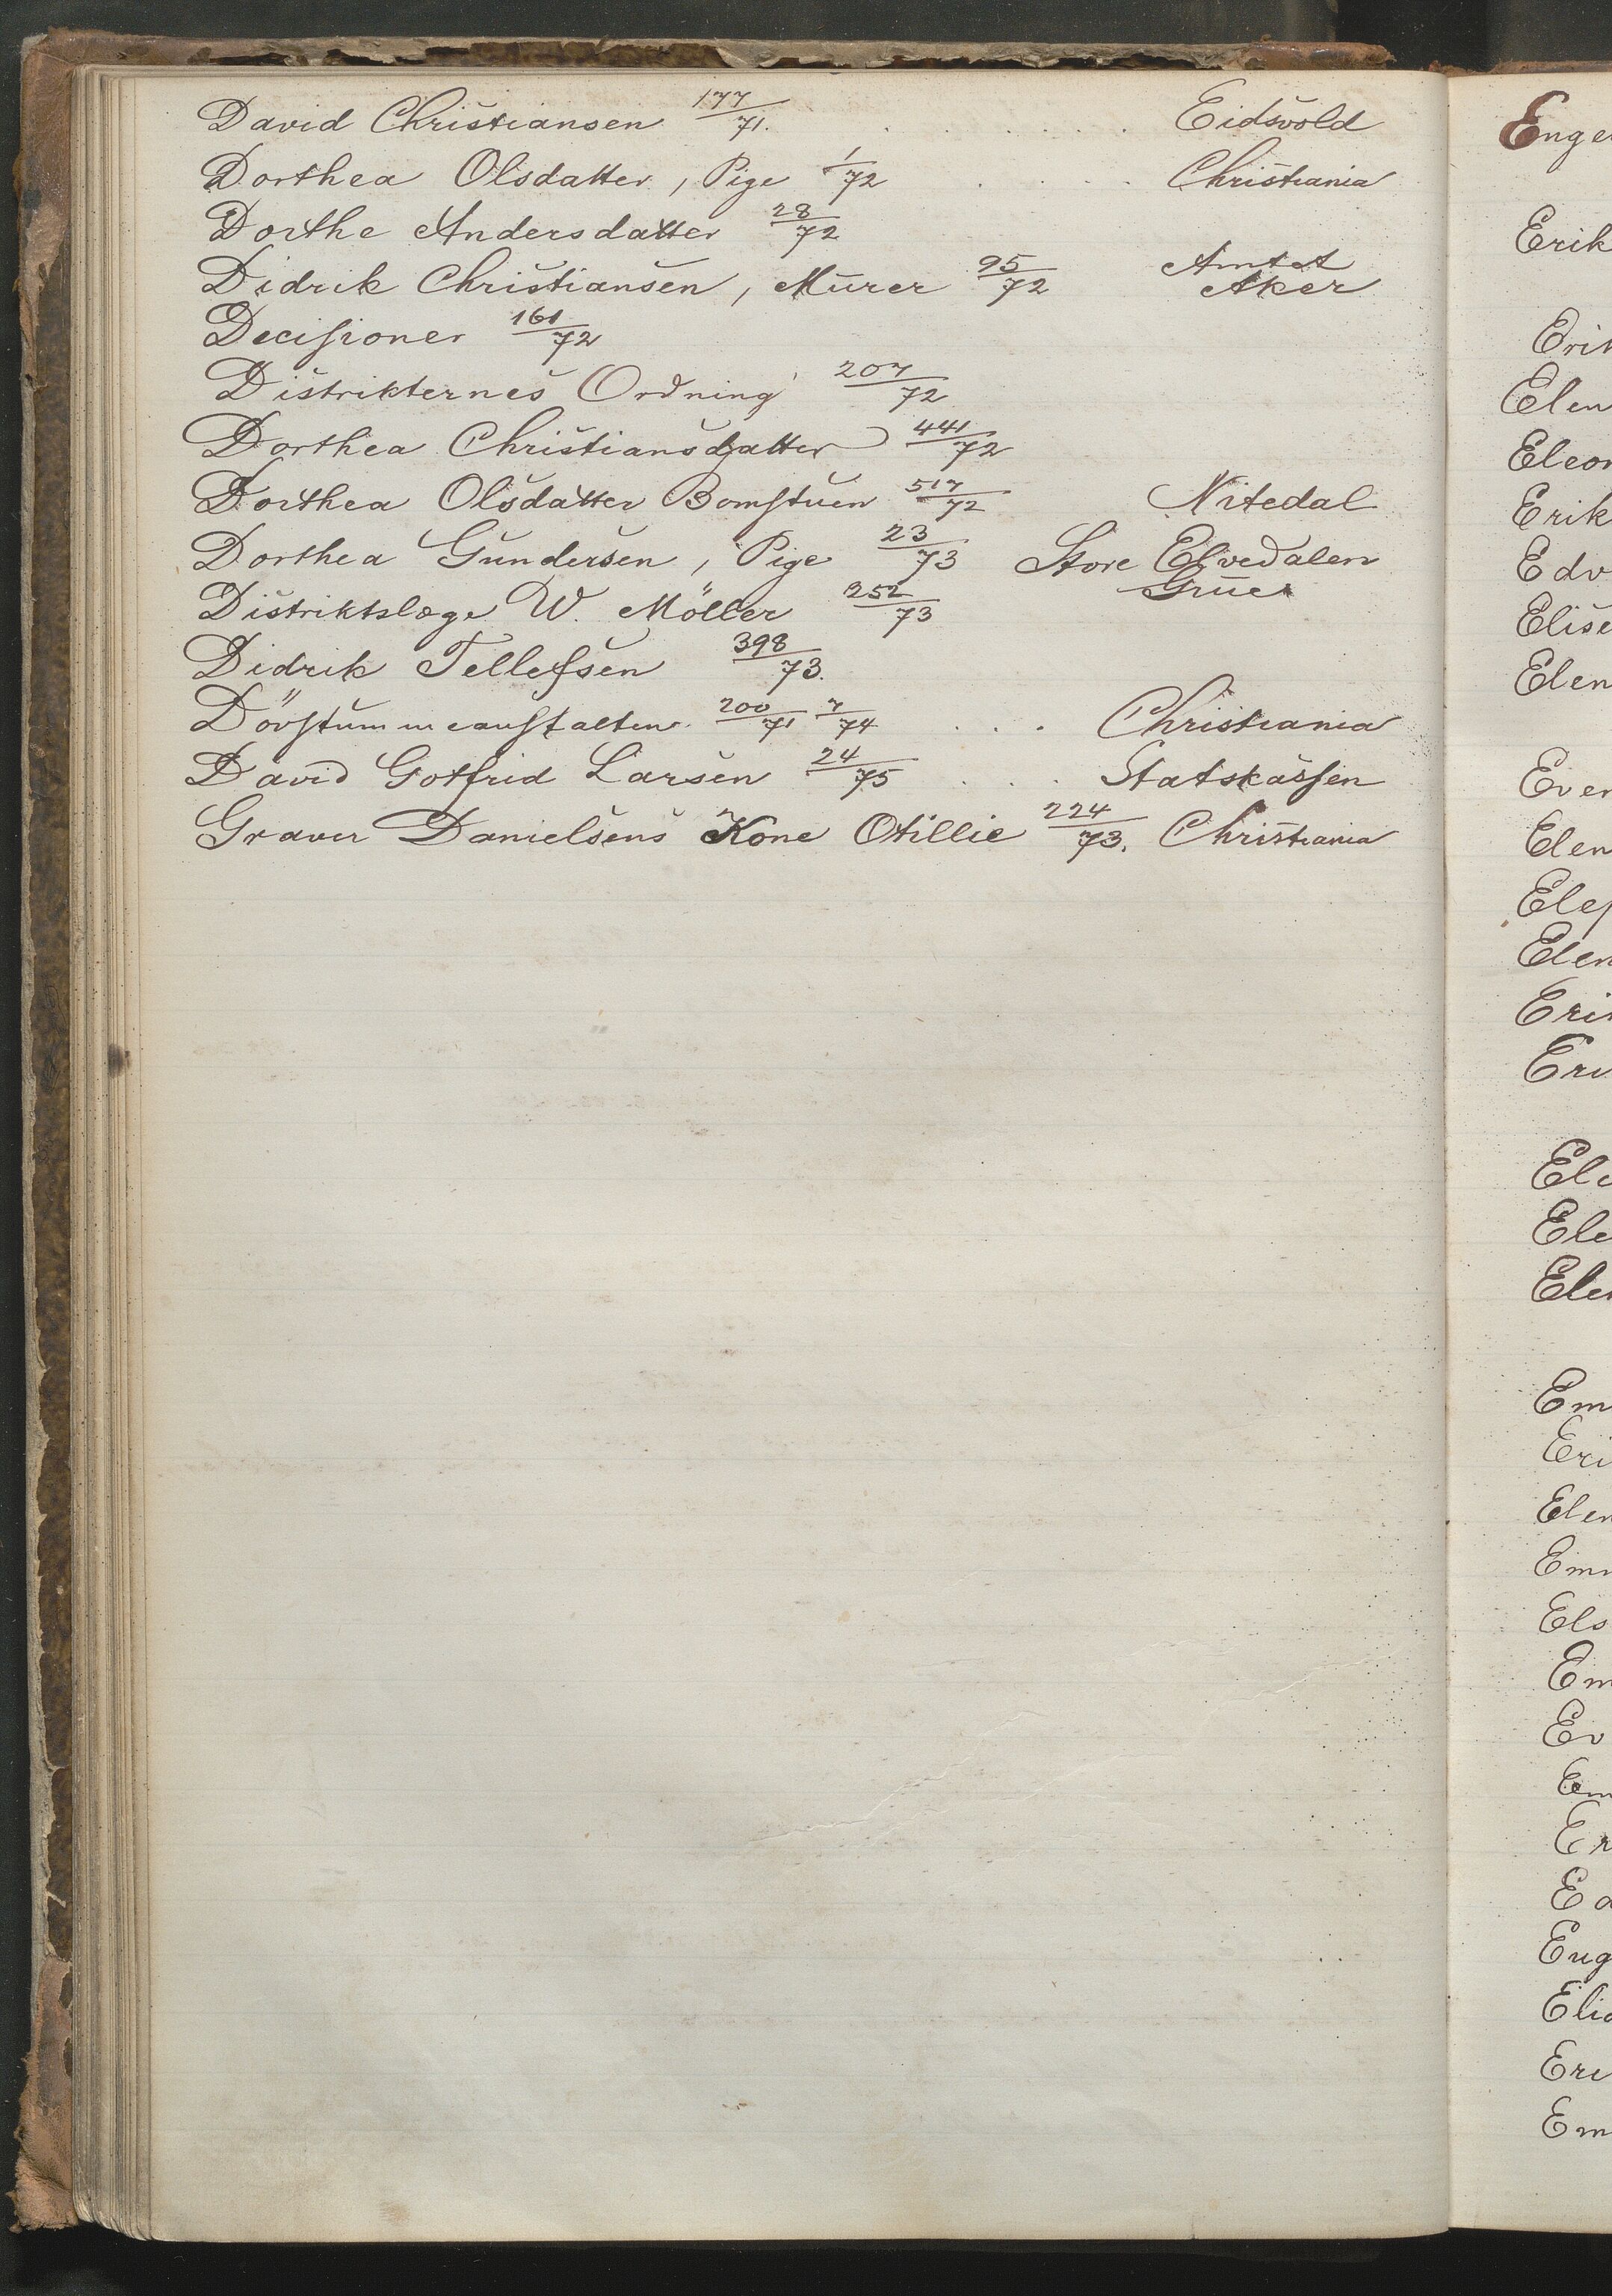 David Christiansen 177/71. . . . . . . Eidsvold
Dorthea Olsdatter, Pige 1/72 . . . . Christiania
Dorthe Andersdatter 28/72
Didrik Christiansen, Murer 95/72 Amtet
Aker
Decisioner 161/72
Distrikternes Ordning 207/72
Dorthea Christiansdatter 441/72
Dorthea Olsdatter Bomstuen 517/72 Nitedal
Dorthea Gundersen, Pige 23/73 Store Elvedalen
Distriktslæge W. Möller 252/73 Grue
Didrik Tellefsen 398/73.
Dövstummeanstalten 200/71 7/74 . . . Christiania
David Gotfrid Larsen 24/75 . . . Statskassen
Graver Danielsens Kone Otillie 224/73. Christiania
Enge
Erik
Erik
Elen
Eleon
Erik
Edv
Elise
Elen
Even
Elen
Elen
Eri
Ele
Em
Eri
Elen
Els
Em
Ev
Em
Er
Ed
Eug
Elia
Em